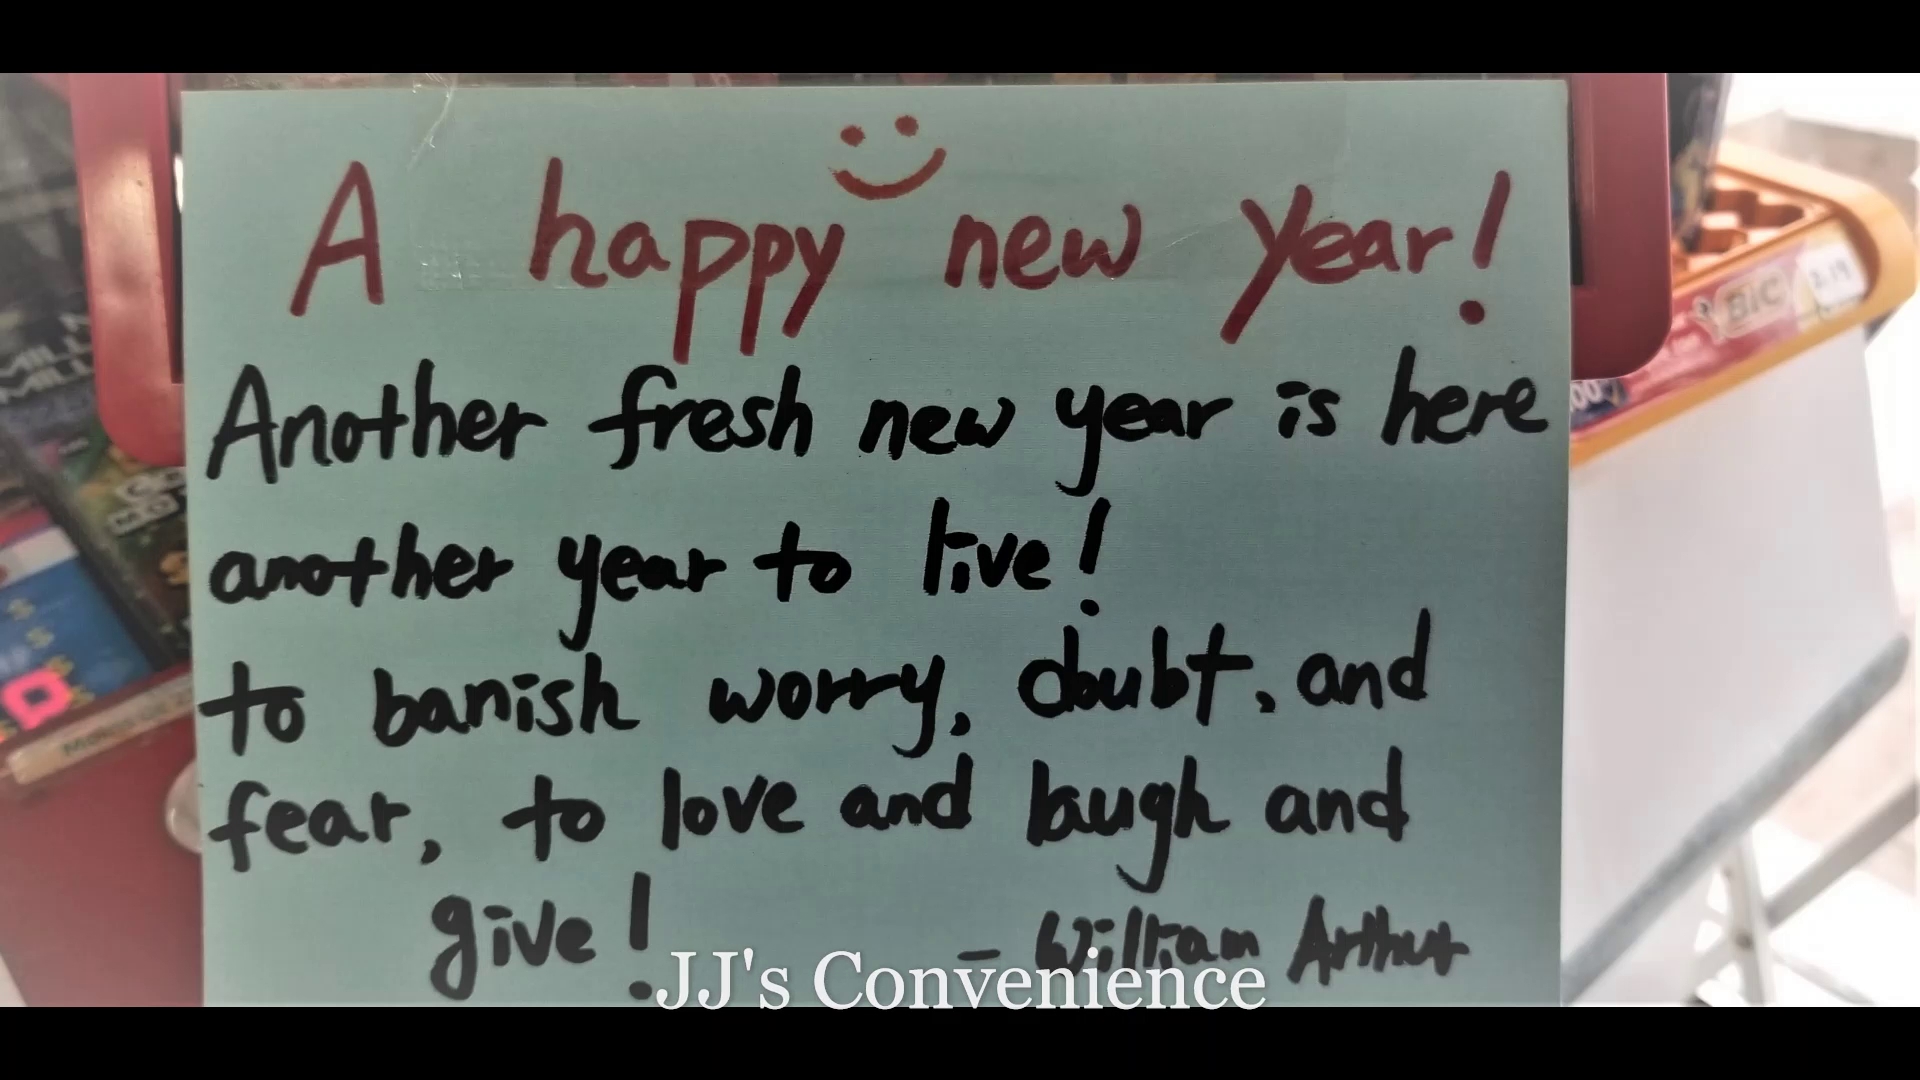 A happy new year!
Another fresh new year is here
another year to live!
to banish worry, doubt, and
fear, to love and laugh and
give!
- William Arthur
JJ's Convenience
BIC
2.19